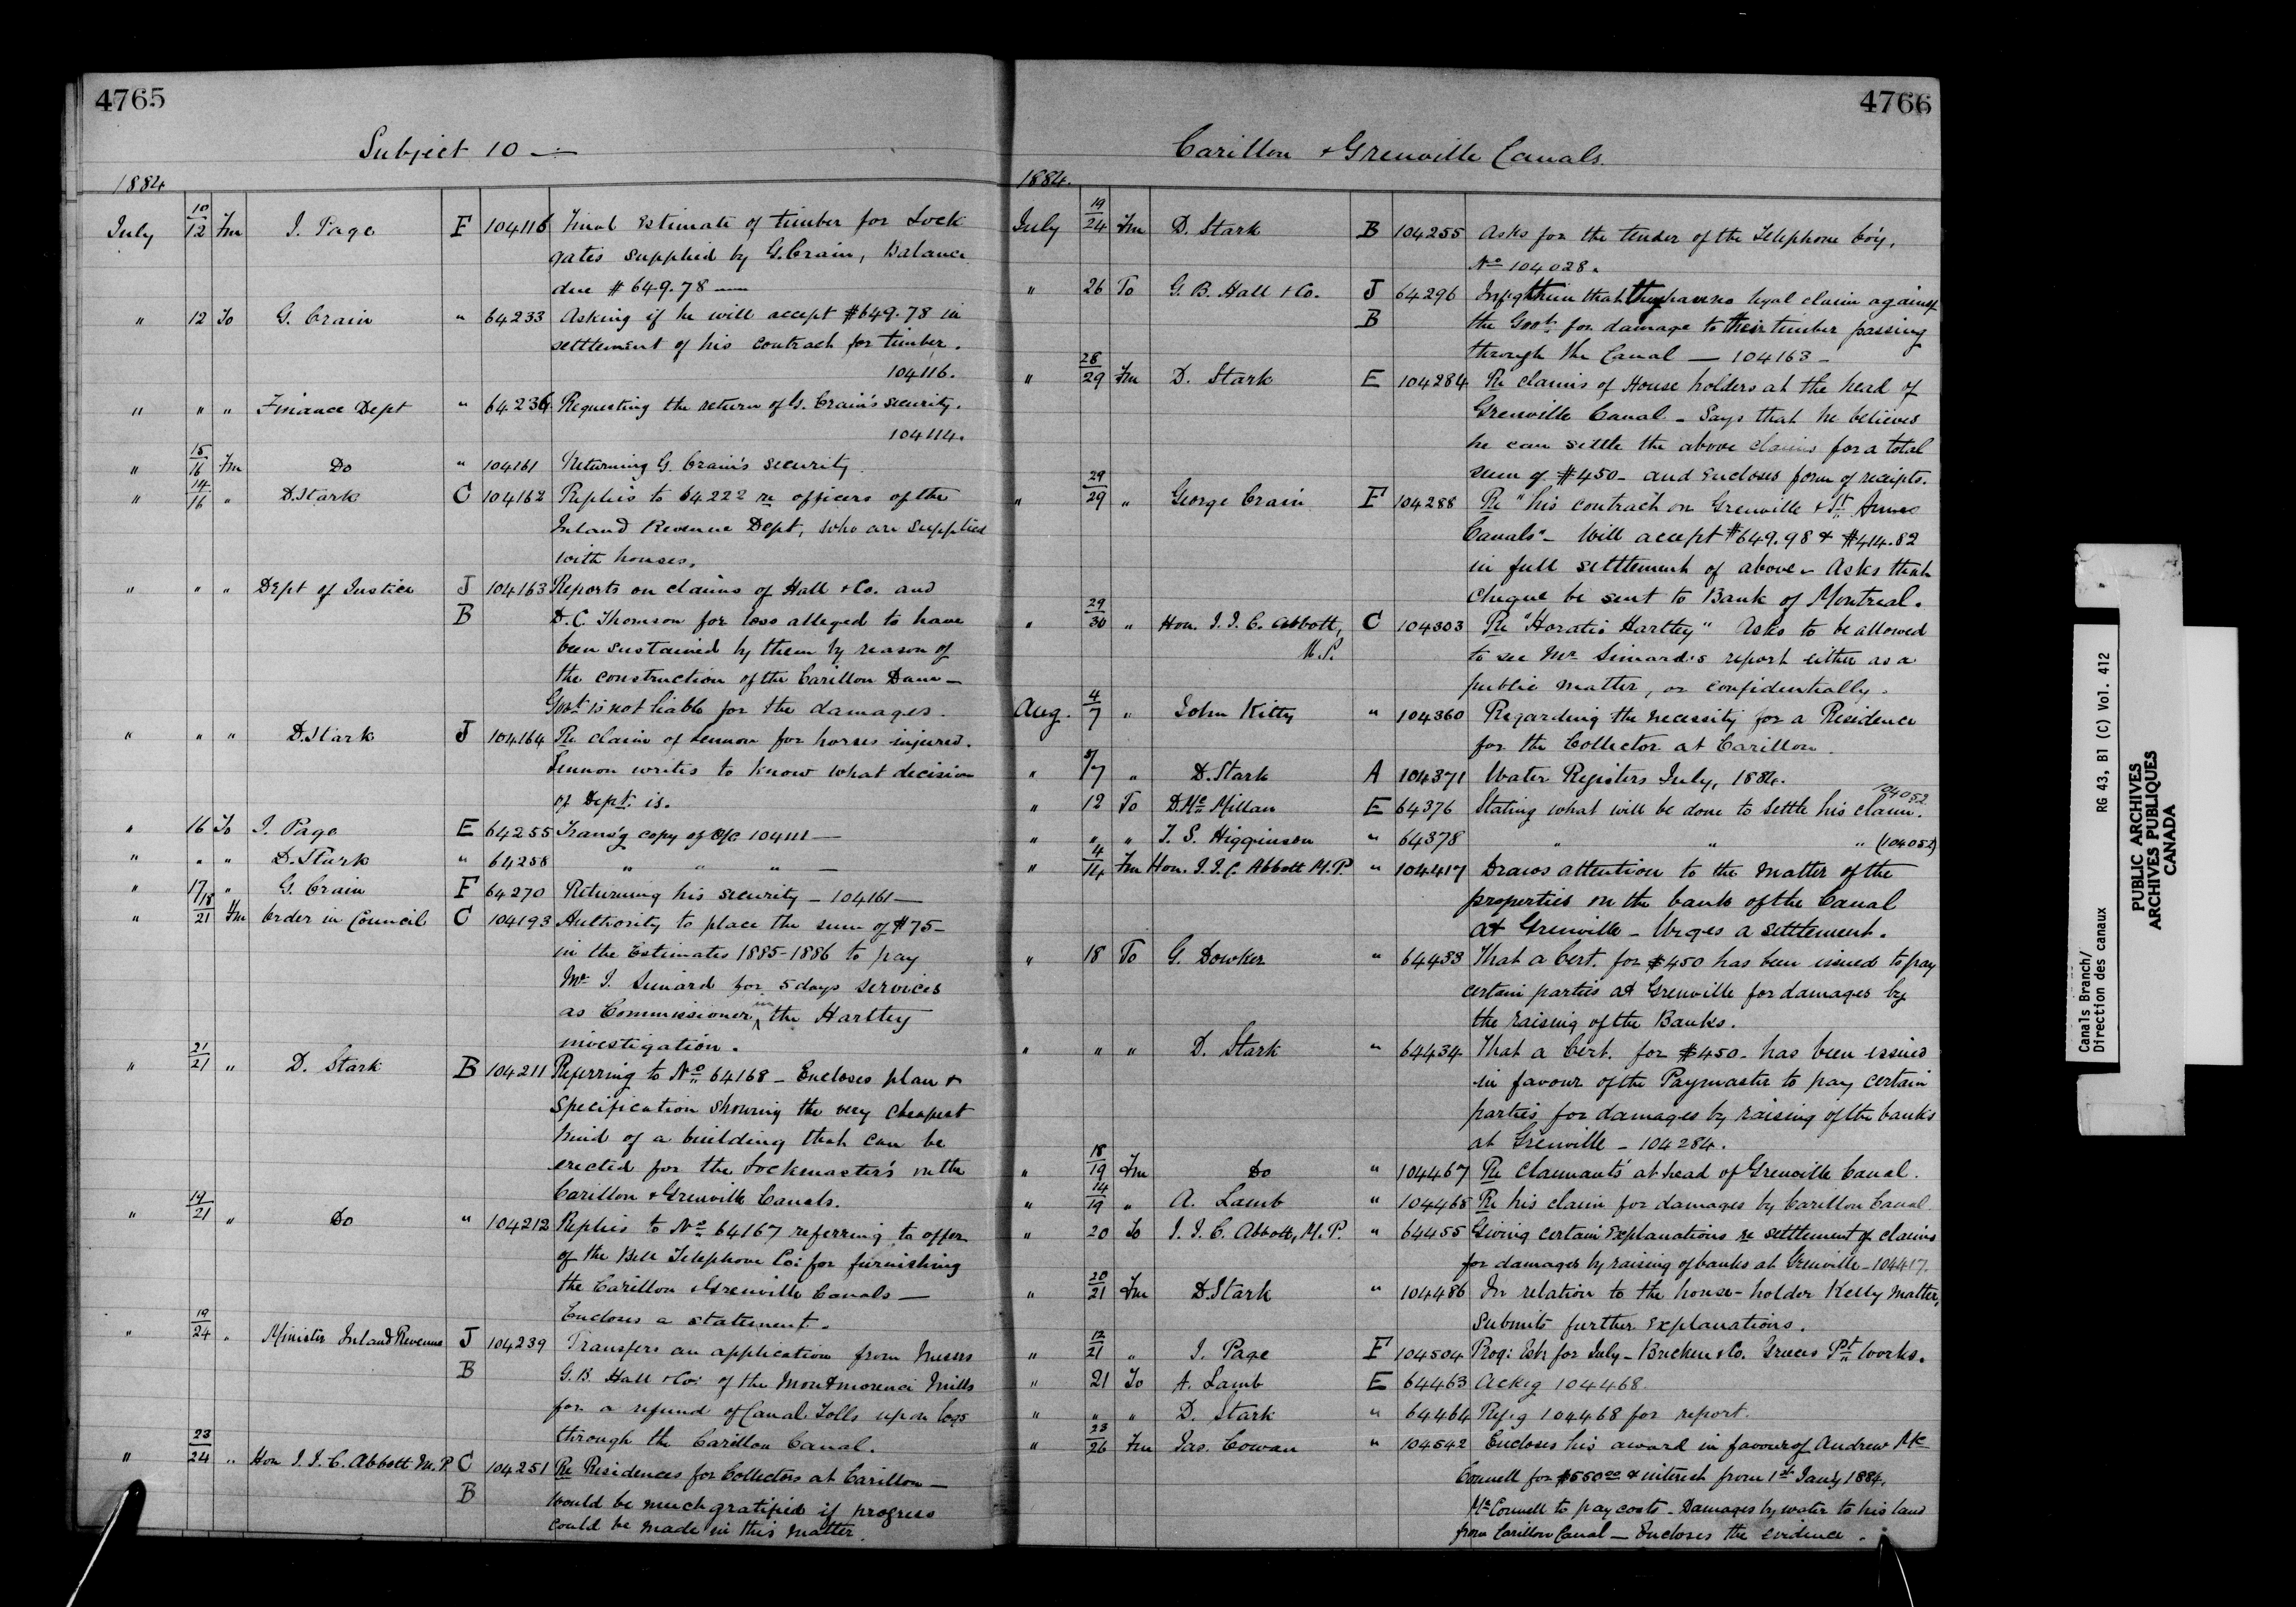 4765
Subject 10 —
1884
July 10/12 Fm J. Page F 104116 Final Estimate of timber for Lock
gates supplied by G. Crain, Balance
due $649.78 —
" 12 To G. Crain " 64233 Asking if he will accept $649.78 in
settlement of his contract for timber.
104116.
" " " Finance Dept " 64236 Requesting the return of G. Crain's security.
104114.
" 15/16 Fm Do " 104161 Returning G. Crain's security.
" 14/16 " D. Stark C 104162 Replies to 64222 re officers of the
Inland Revenue Dept, who are supplied
with houses.
" " " Dept of Justice J 104163 Reports on claims of Hall & Co. and
B D. C. Thomson for loss alleged to have
been sustained by them by reason of
the construction of the Carillon Dam —
Govt is not liable for the damages.
" " " D. Stark J 104164 Re claim of Lennon for horses injured.
Lennon writes to know what decision
of Dept. is.
" 16 To J. Page E 64255 Trans'g copy of O/C 104111 —
" " " D. Stark " 64256 " " " —
" 17/18 " G. Crain F 64270 Returning his security — 104161 —
" 21 Fm Order in Council C 104193 Authority to place the sum of $75 —
in the Estimates 1885-1886 to pay
Mr J. Simard for 5 days services
as Commissioner in the Hartley
investigation.
" 21/21 " D. Stark B 104211 Referring to No 64168 — Encloses plan &
specification showing the very cheapest
kind of a building that can be
erected for the Lockmaster's on the
Carillon & Grenville Canals.
" 19/21 " Do " 104212 Replies to No 64167 referring to offer
of the Bell Telephone Co: for furnishing
the Carillon & Grenville Canals —
Encloses a statement.
" 19/24 " Minister Inland Revenue J 104239 Transfers an application from Messrs
B G. B. Hall & Co: of the Montmorenci Mills
for a refund of Canal Tolls upon logs
through the Carillon Canal.
" 23/24 " Hon J. J. C. Abbott M.P. C 104251 Re Residences for Collectors at Carillon —
B Would be much gratified if progress
could be made in this matter.
4766
Carillon & Grenville Canals.
1884.
July 19/24 Fm D. Stark B 104255 Asks for the tender of the Telephone Co'y.
No 104028.
" 26 To G. B. Hall & Co. J 64296 Inf'g them that they have no legal claim against
B the Govt. for damage to their timber passing
through the Canal — 104163 —
" 28/29 Fm D. Stark E 104284 Re claims of House holders at the head of
Grenville Canal — Says that he believes
he can settle the above claims for a total
sum of $450 — and Encloses form of receipts.
" 29/29 " George Crain F 104288 Re "his contract on Grenville & St Annes
Canals" — Will accept $649.98 & $414.82
in full settlement of above — Asks that
cheque be sent to Bank of Montreal.
" 29/30 " Hon. J. J. C. Abbott, C 104303 Re "Horatio Hartley" Asks to be allowed
M.P. to see Mr Simard's report either as a
public matter, or confidentially.
Aug. 4/7 " John Kitty " 104360 Regarding the necessity for a Residence
for the Collector at Carillon.
" 5/7 " D. Stark A 104371 Water Registers July, 1884.
" 12 To D. McMillan E 64376 Stating what will be done to settle his claim. 104052
" " " T. S. Higginson " 64378 " " " (104052)
" 4/14 Fm Hon. J. J. C. Abbott M.P. " 104417 Draws attention to the matter of the
properties on the bank of the Canal
at Grenville — Urges a settlement.
" 18 To G. Dowker " 64433 That a Cert. for $450 has been issued to pay
certain parties at Grenville for damages by
the raising of the Banks.
" " " D. Stark " 64434 That a Cert. for $450 — has been issued
in favour of the Paymaster to pay certain
parties for damages by raising of the banks
at Grenville — 104284.
" 18/19 Fm Do " 104467 Re Claimants' at head of Grenville Canal.
" 14/19 " A. Lamb " 104468 Re his claim for damages by Carillon Canal
" 20 To J. J. C. Abbott, M.P. " 64455 Giving certain Explanations re settlement of claims
for damages by raising of banks at Grenville — 104417.
" 20/21 Fm D. Stark " 104486 In relation to the house-holder Kelly matter,
Submits further Explanations.
" 12/21 " J. Page F 104504 Prog: Est. for July — & Co. Greeces Pt Works.
" 21 To A. Lamb E 64463 Ack'g 104468.
" " " D. Stark " 64464 Ref'g 104468 for report.
" 23/26 Fm Jas. Cowan " 104542 Encloses his award in favour of Andrew Mc
Connell for $550 00 & interest from 1st Jan'y 1884.
McConnell to pay costs — Damages by water to his land
from Carillon Canal — Encloses the evidence.
Canals Branch/
Direction des canaux RG 43, B1 (C) Vol. 412
PUBLIC ARCHIVES
ARCHIVES PUBLIQUES
CANADA